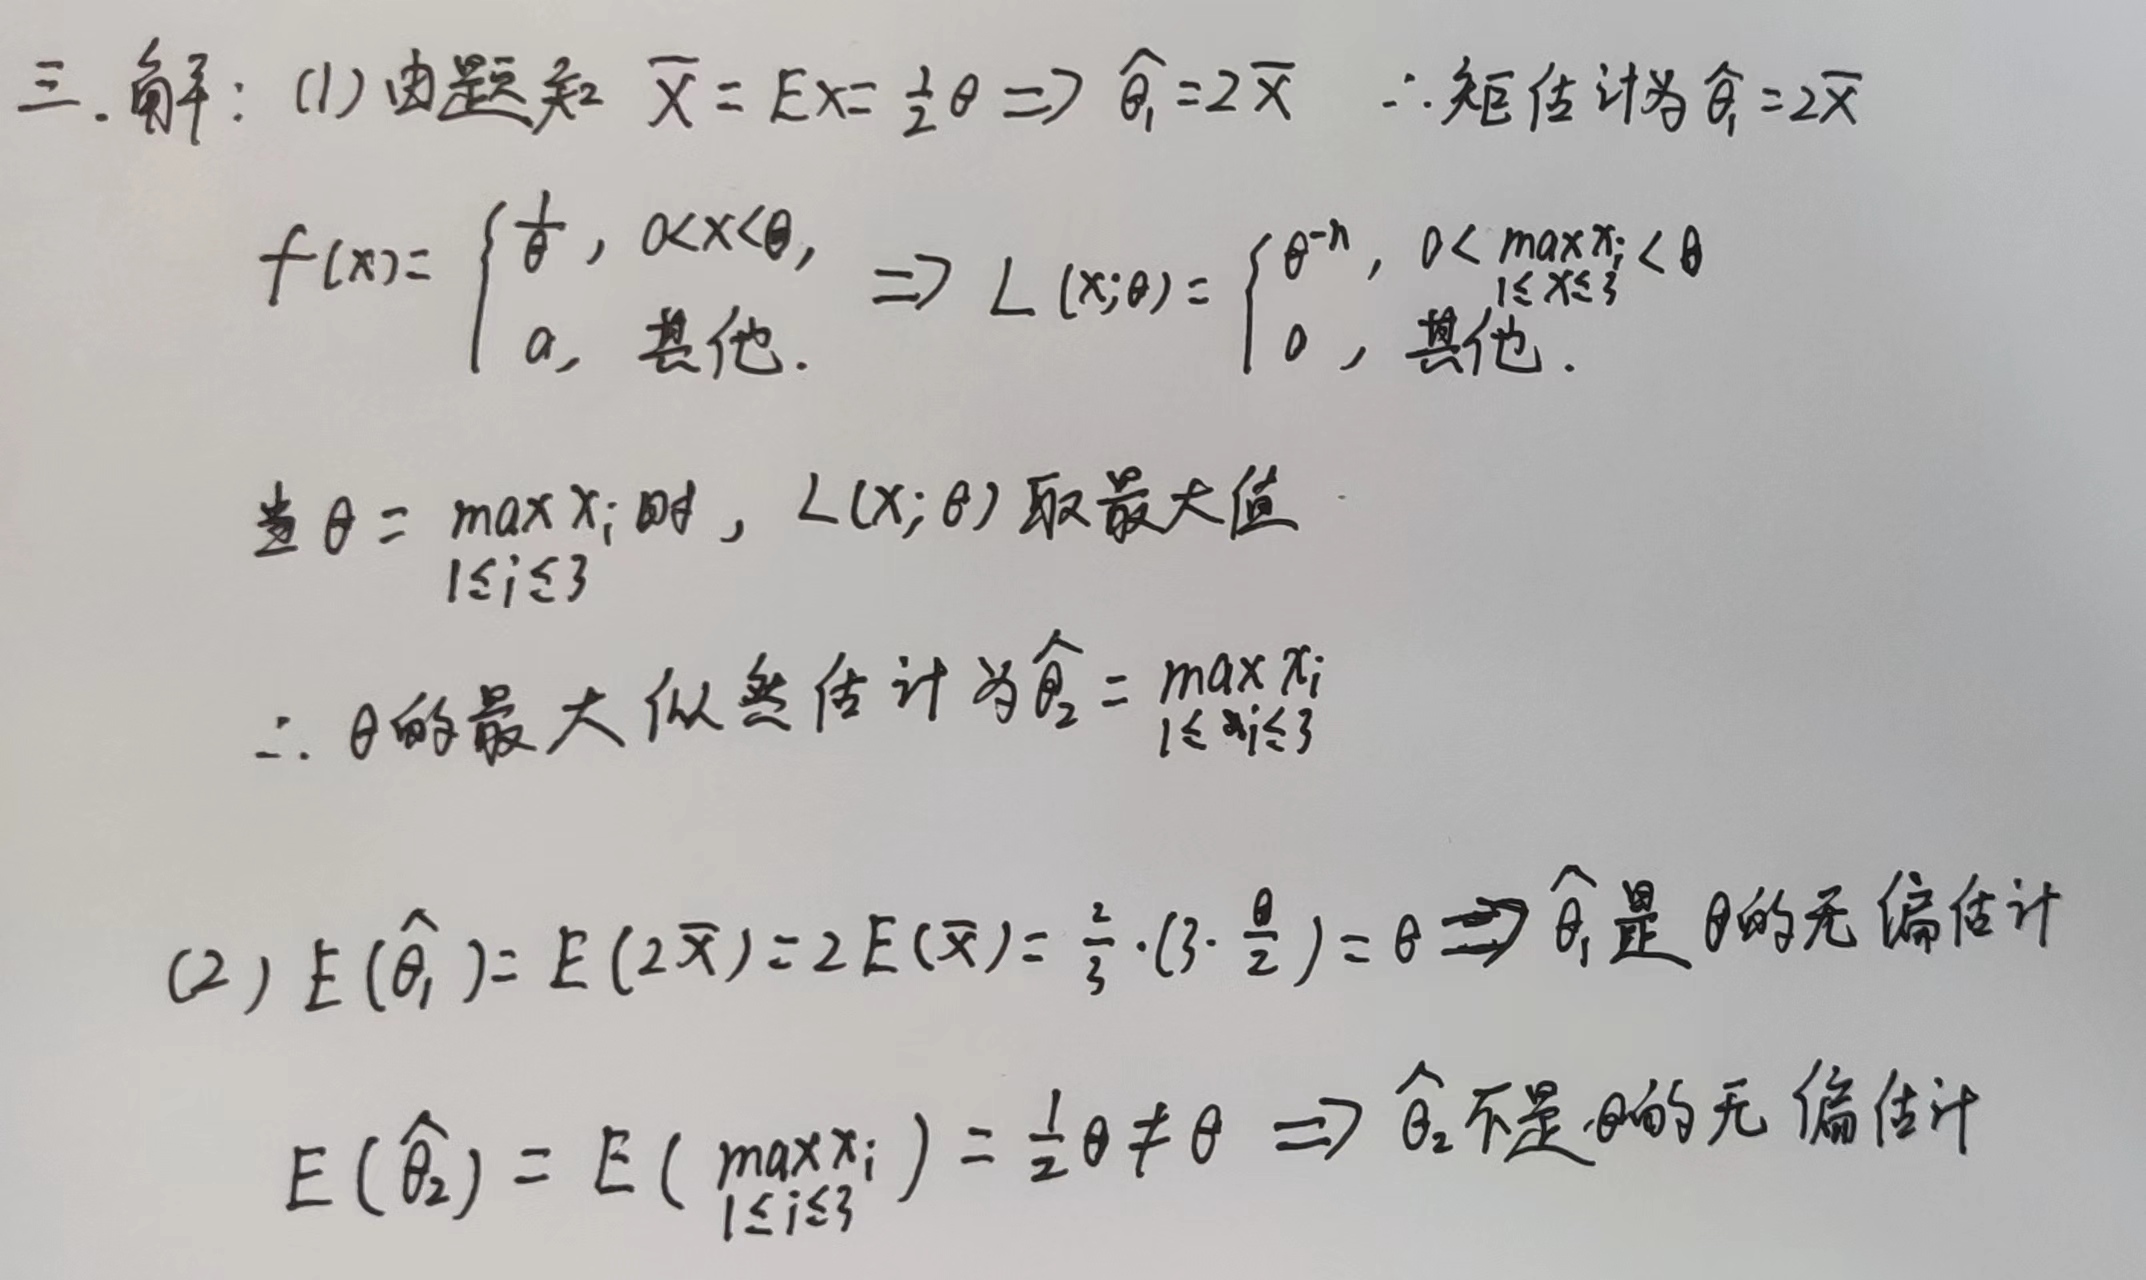 三.解：(1)由题知 X̄ = EX = ½θ ⇒ θ̂₁ = 2X̄ ∴矩估计为 θ̂₁ = 2X̄
f(x) = { 1/θ, 0<x<θ, ⇒ L(x;θ) = { θ⁻ⁿ, 0 < max xᵢ < θ
1≤x≤3
0, 其他. 0, 其他.
当 θ = max xᵢ 时, L(x;θ) 取最大值
1≤i≤3
∴ θ的最大似然估计为 θ̂₂ = max xᵢ
1≤i≤3
(2) E(θ̂₁) = E(2X̄) = 2E(X̄) = 2/3·(3·θ/2) = θ ⇒ θ̂₁是θ的无偏估计
E(θ̂₂) = E(max xᵢ) = ½θ ≠ θ ⇒ θ̂₂不是θ的无偏估计
1≤i≤3